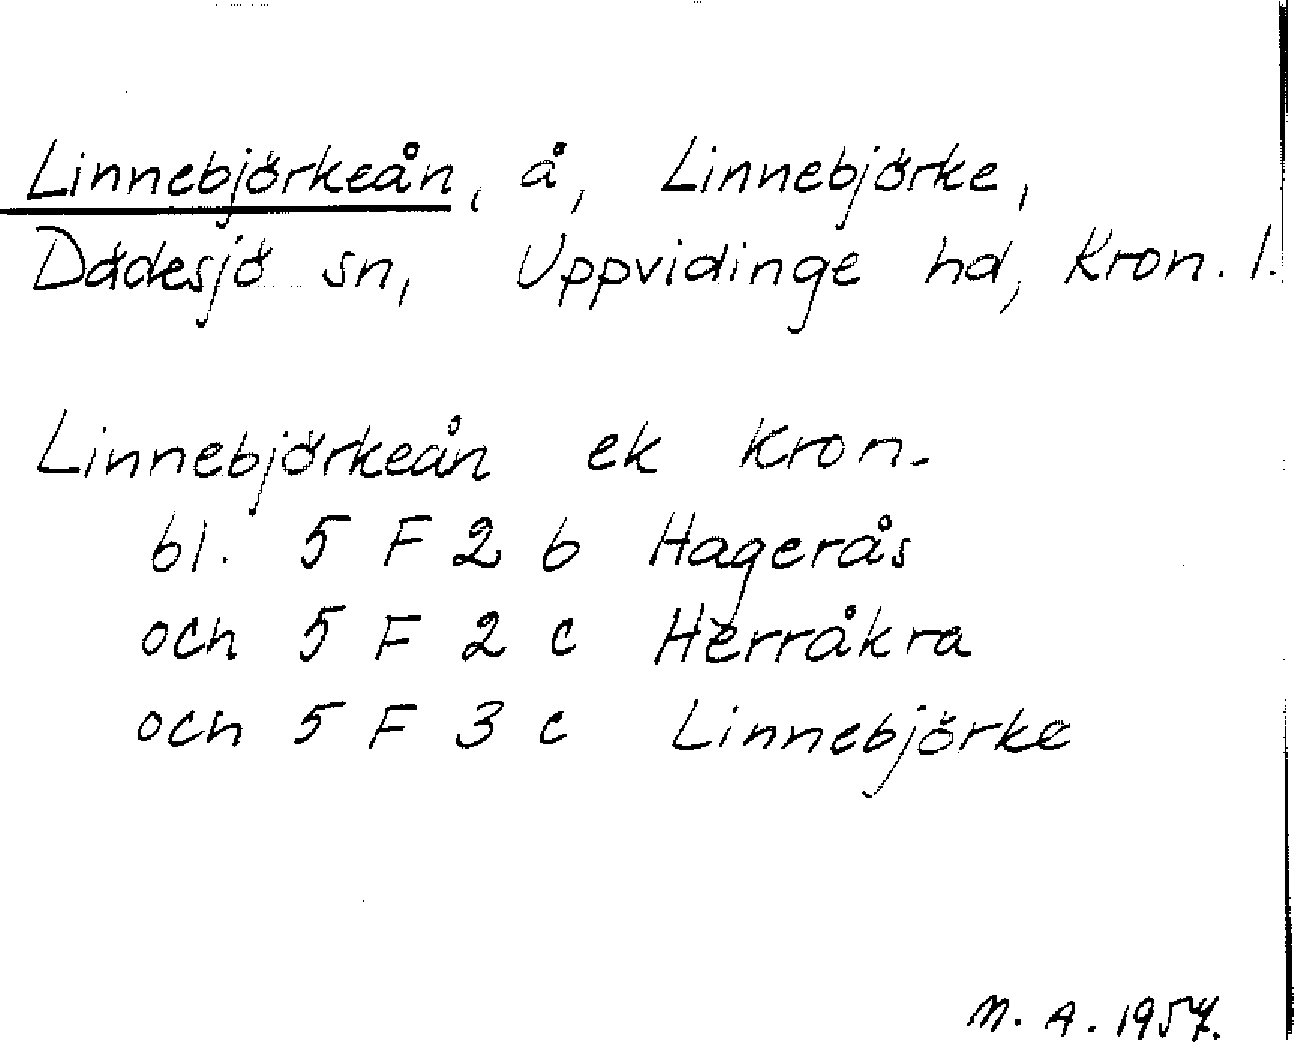 Linnebjörkeån, å, Linnebjörke,
Dädesjö sn, Uppvidinge hd, Kron. l.
Linnebjörkeån ek Kron.
bl. 5 F 2 b Hagerås
och 5 F 2 c Herråkra
och 5 F 3 c Linnebjörke
M. A. 1957.